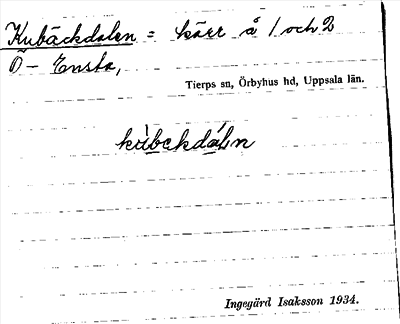 Kubäckdalen = kärr å 1 och 2
Ö- Ensta,
Tierps sn, Örbyhus hd, Uppsala län.
kùbekdáln
Ingegärd Isaksson 1934.